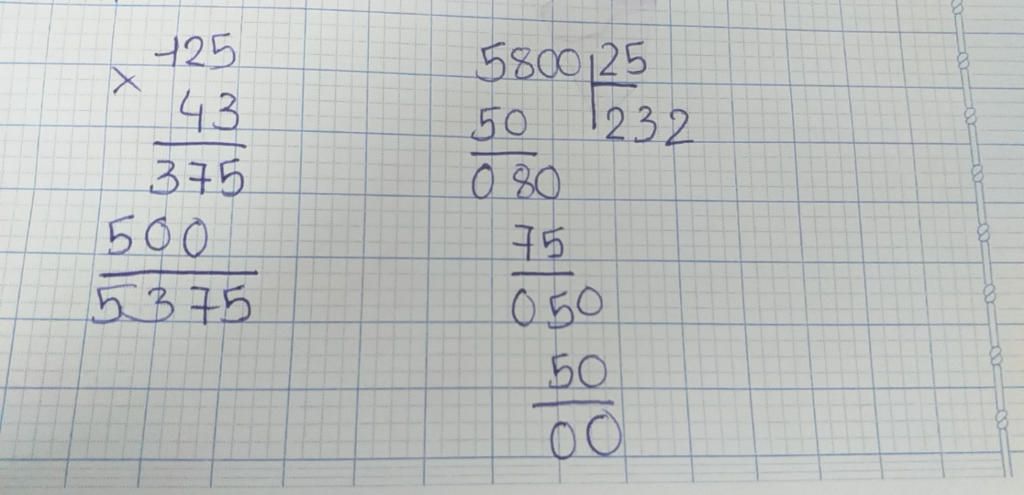 125
× 43
375
500
5375
5800 25
50 232
080
75
050
50
00